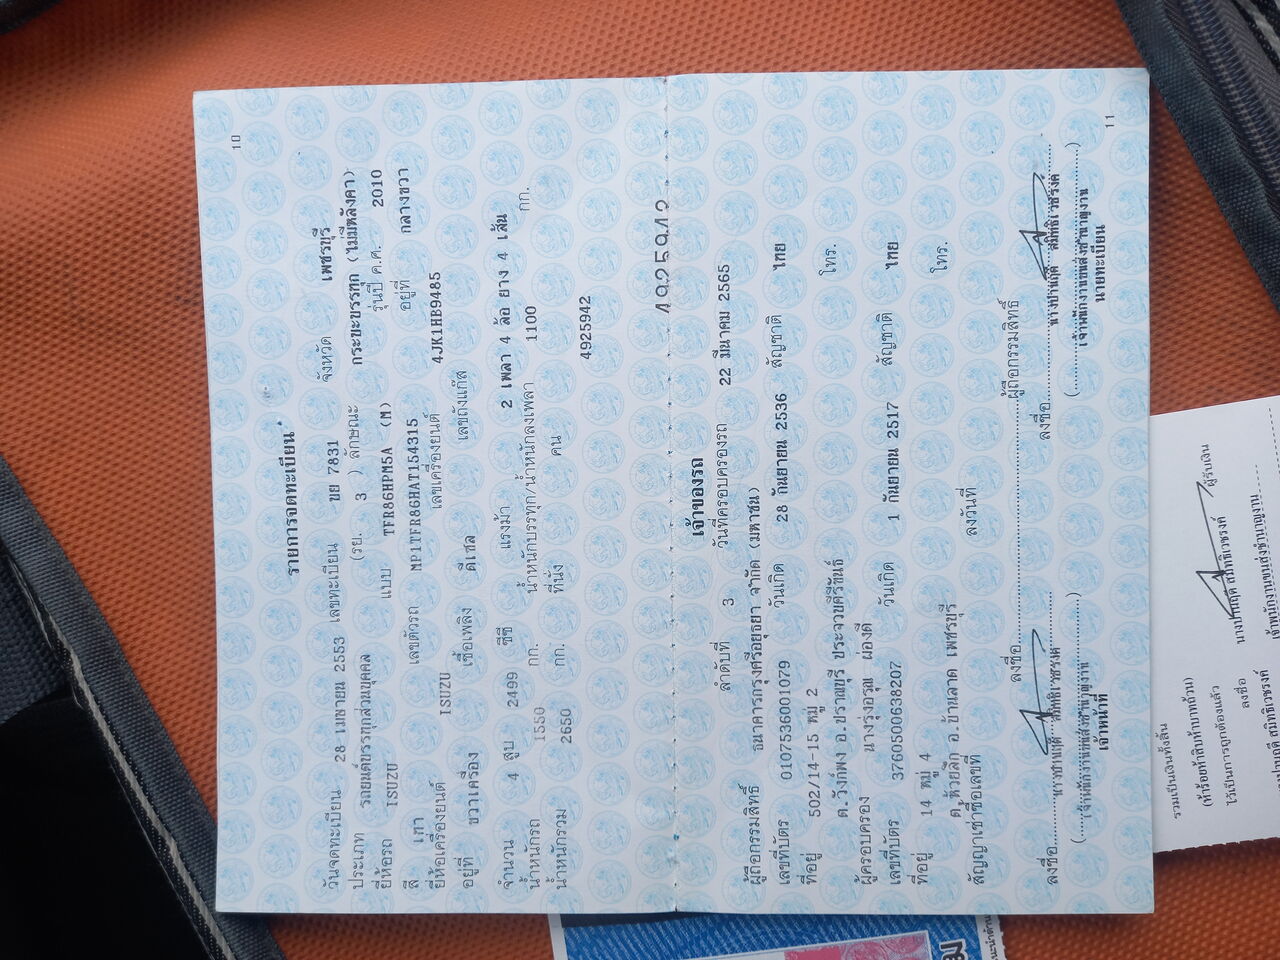 10
รายการจดทะเบียน
วันจดทะเบียน 28 เมษายน 2553 เลขทะเบียน ขย 7831 จังหวัด เพชรบุรี
ประเภท รถยนต์บรรทุกส่วนบุคคล (รย. 3 ) ลักษณะ กระบะบรรทุก (ไม่มีหลังคา)
ยี่ห้อรถ ISUZU แบบ TFR86HPM5A (M) รุ่นปี ค.ศ. 2010
สี เทา เลขตัวรถ MP1TFR86HAT154315 อยู่ที่ กลางขวา
ยี่ห้อเครื่องยนต์ ISUZU เลขเครื่องยนต์ 4JK1HB9485
อยู่ที่ ขวาเครื่อง เชื้อเพลิง ดีเซล เลขถังแก๊ส
จำนวน 4 สูบ 2499 ซีซี แรงม้า 2 เพลา 4 ล้อ ยาง 4 เส้น
น้ำหนักรถ 1550 กก. น้ำหนักบรรทุก/น้ำหนักลงเพลา 1100 กก.
น้ำหนักรวม 2650 กก. ที่นั่ง คน
4925942
เจ้าของรถ
ลำดับที่ 3 วันที่ครอบครองรถ 22 มีนาคม 2565
ผู้ถือกรรมสิทธิ์ ธนาคารกรุงศรีอยุธยา จำกัด (มหาชน)
เลขที่บัตร 0107536001079 วันเกิด 28 กันยายน 2536 สัญชาติ ไทย
ที่อยู่ 502/14-15 หมู่ 2 โทร.
ต.วังก์พง อ.ปราณบุรี ประจวบคีรีขันธ์
ผู้ครอบครอง นางรุ่งอรุณ ผ่องดี
เลขที่บัตร 3760500638207 วันเกิด 1 กันยายน 2517 สัญชาติ ไทย
ที่อยู่ 14 หมู่ 4 โทร.
ต.ห้วยลึก อ.บ้านลาด เพชรบุรี
สัญญาเช่าซื้อเลขที่ ลงวันที่
ลงชื่อ ผู้ถือกรรมสิทธิ์
ลงชื่อ ลงชื่อ
เจ้าหน้าที่ นายทะเบียน
11
รวมเป็นเงินทั้งสิ้น
(ห้าร้อยห้าสิบห้าบาทถ้วน)
ไว้เป็นการถูกต้องแล้ว
ลงชื่อ ผู้รับเงิน